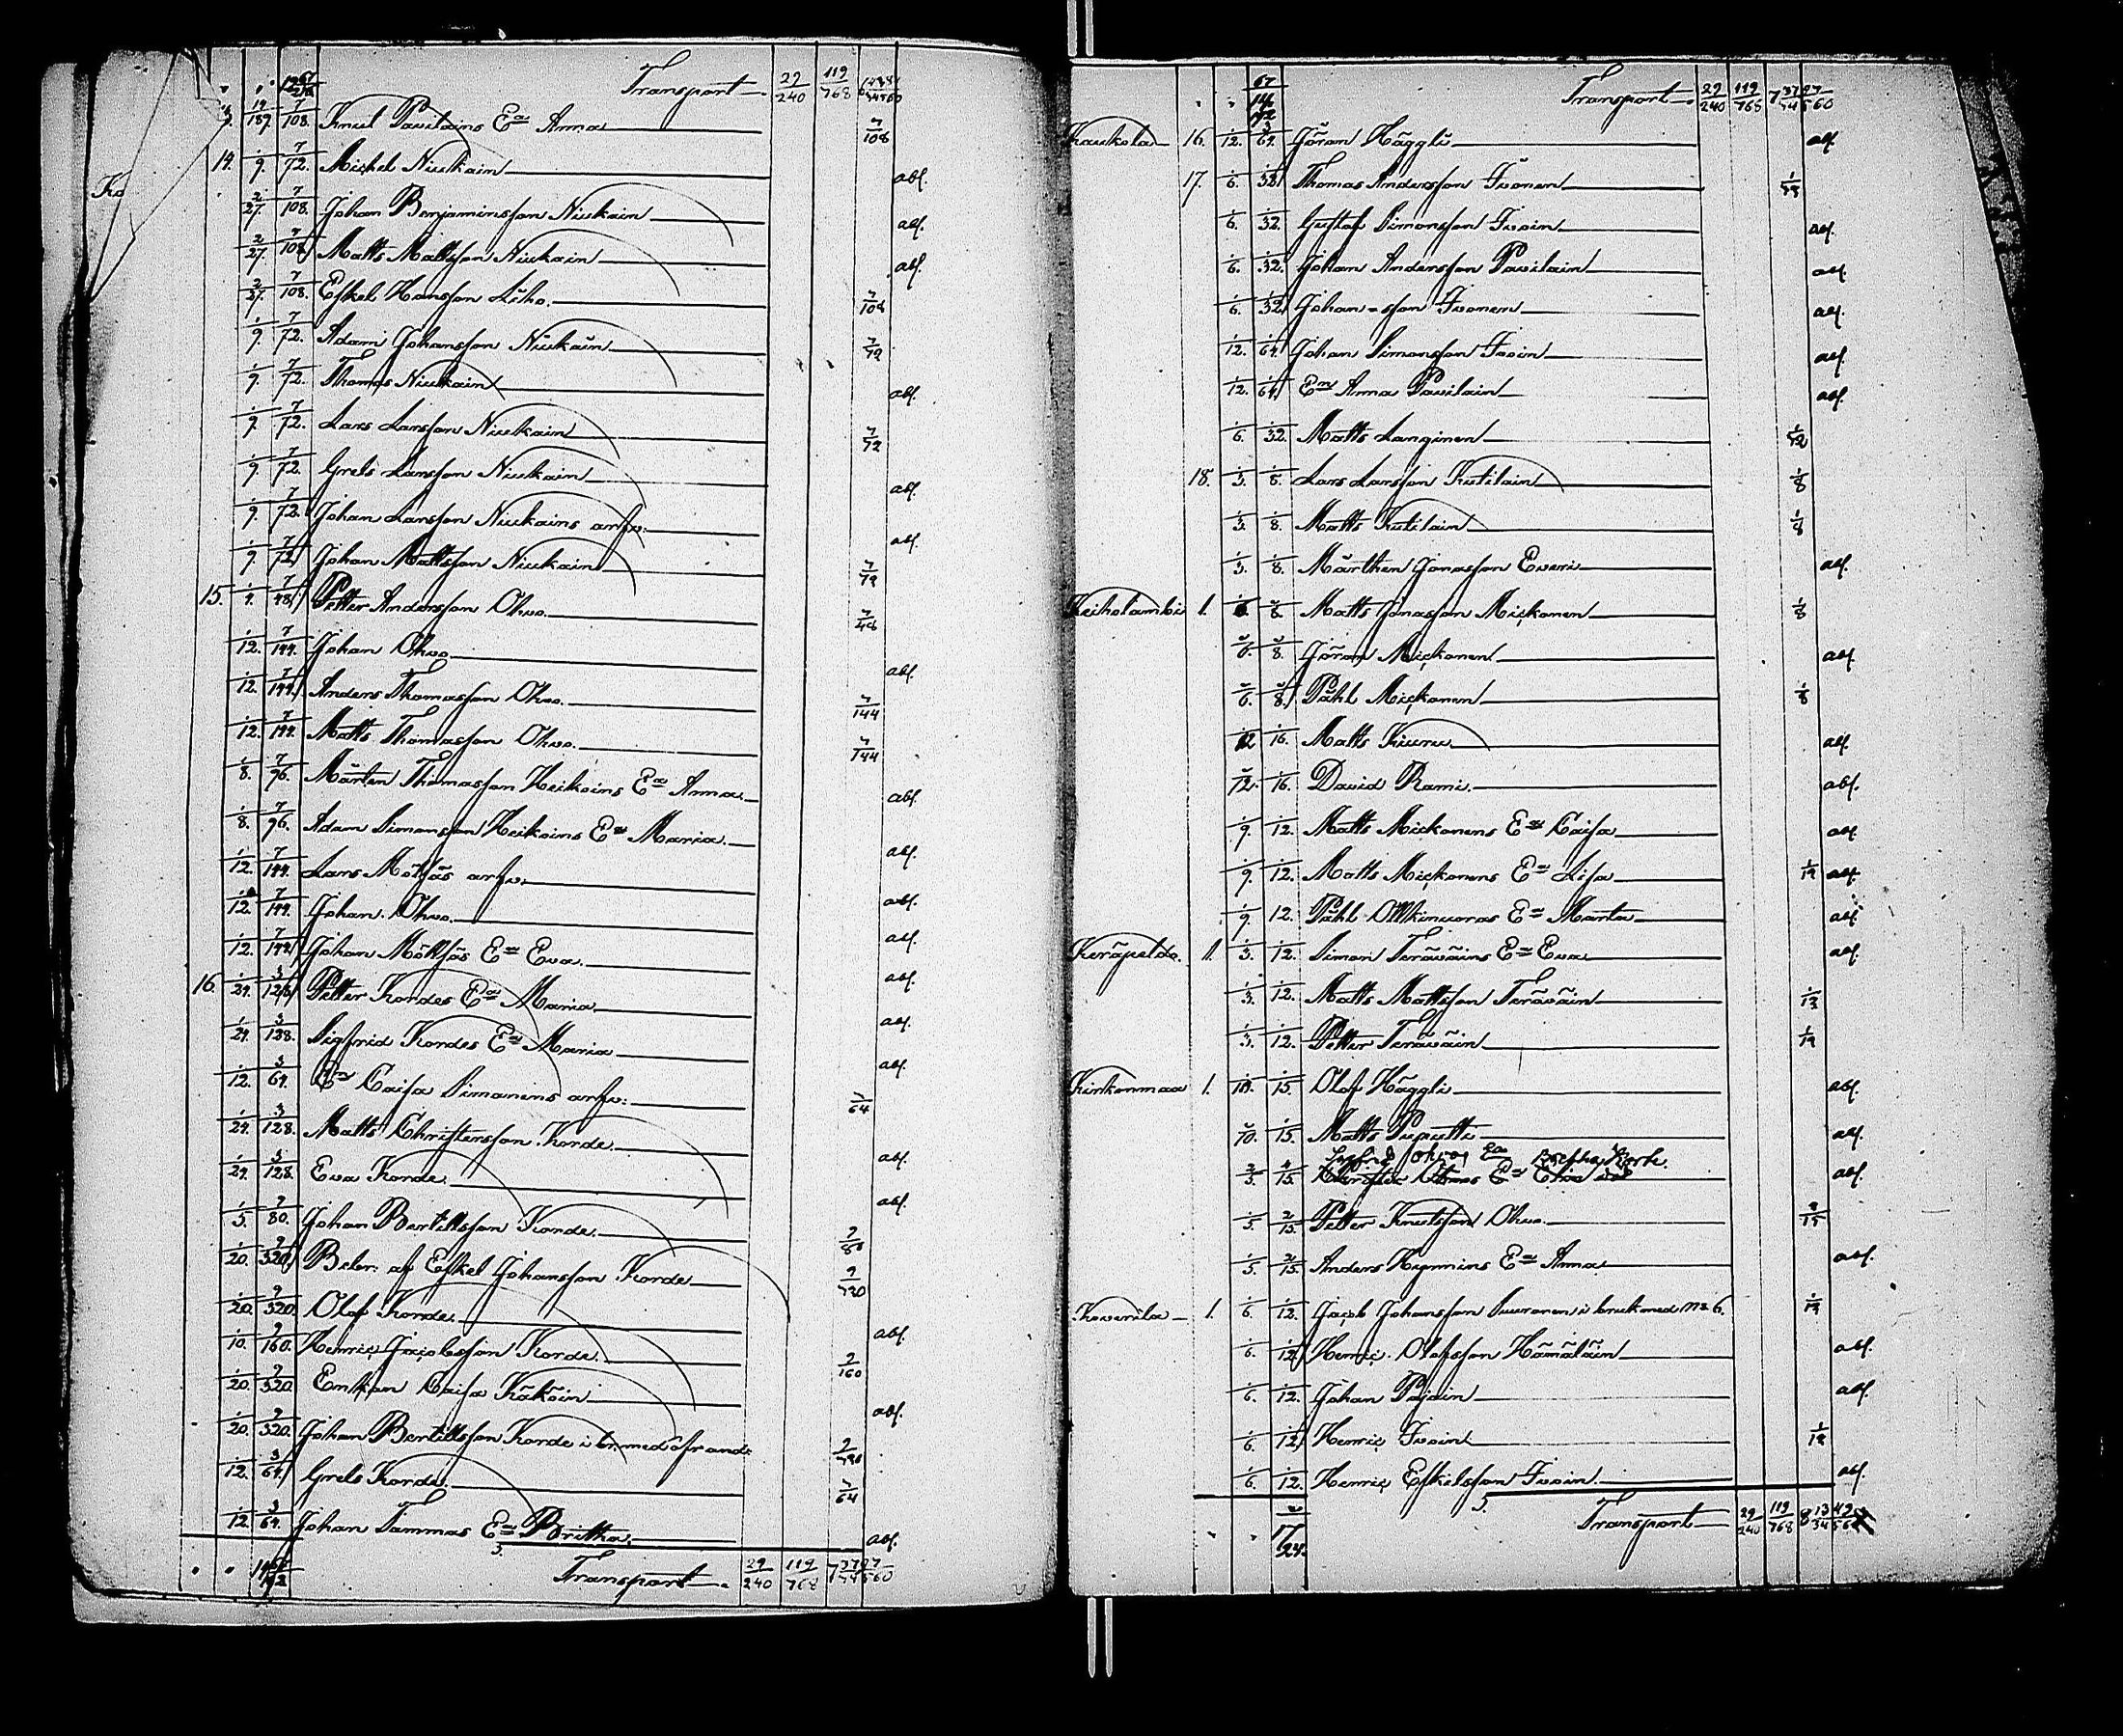 Transport 29/240 119/768
19/189. 7/108. Knut Pavilains Ea Anna 7/108
14. 1/9. 7/72. Michel Niukain abs.
Ko
2/27. 7/108. Johan Benjaminsson Niukain abs.
2/27. 7/108. Matts Mattsson Niukain abs.
2/27. 7/108. Eskel Hansson Liho. 7/108
1/9. 7/72. Adam Johansson Niukain 7/72
1/9. 7/72. Thomas Niukain abs.
1/9. 7/72. Lars Larsson Niukain 7/72
1/9. 7/72. Grels Larsson Niukain abs.
1/9. 7/72. Johan Larsson Niukains arfv: abs.
1/9. 7/72. Johan Mattsson Niukain 7/72
15. 1/4. 7/48. Petter Andersson Ohvo. 7/48
1/12. 7/144. Johan Ohvo abs.
1/12. 7/144. Anders Thomasson Ohvo. 7/144
1/12. 7/144. Matts Thomasson Ohvo. 7/144
1/8. 7/96. Mårten Thomasson Heikoins Ea Anna abs.
1/8. 7/96. Adam Simonsson Heikoins Ea Maria. abs.
1/12. 7/144. Lars Möttjäs arfv. abs.
1/12. 7/144. Johan Ohvo. abs.
1/12. 7/144. Johan Möttjäs Ea Eva. abs.
16. 1/24. 3/128. Petter Kordes Ea Maria abs.
1/24. 3/128. Sigfrid Kordes Ea Maria abs.
1/12. 3/64. Ea Caisa Simanens arfv: 3/64
1/24. 3/128. Matts Christersson Korde abs.
1/24. 3/128. Eva Korde. abs.
1/5. 9/80. Johan Bertillsson Korde 9/80
1/20. 9/320. Beler: af Eskel Johansson Korde 9/320
1/20. 9/320. Olof Korde. abs.
1/10. 9/160. Henric Jacobsson Korde. 9/160
1/20. 9/320. Enkan Caisa Käköin abs.
1/20. 9/320. Johan Bertillsson Korde i br. med ofvand: 9/320
1/12. 3/64. Grels Korde. 3/64
1/12. 3/64. Johan Tammas Ea Britha. abs.
Transport 29/240 119/768 7 3797/34560
Transport 29/240 119/768 7 3797/34560
Kaukola 16. 1/12. 3/64. Jöran Häggli abs.
17. 1/6. 1/32. Thomas Andersson Ivonen 1/32
1/6. 1/32. Gustaf Simonsson Ivoin abs.
1/6. 1/32. Johan Andersson Pavilain abs.
1/6. 1/32. Johan -sson Ivonen abs.
1/12. 1/64. Johan Simonsson Ivoin abs.
1/12. 1/64. En Anna Pavilain abs.
1/6. 1/32. Matts Langinen 1/32
18. 1/3. 1/8. Lars Larsson Kutilain 1/8
1/3. 1/8. Matts Kutilain 1/8
1/3. 1/8. Mårthen Jonasson Everi abs.
Keiholambi 1. 1/8. Matts Jonasson Mickonen 1/8
1/6. 1/8. Jöran Mickonen abs.
1/6. 1/8. Påhl Mickonen 1/8
1/12 1/16. Matts Kiuru abs.
1/12. 1/16. David Rami. abs.
1/9. 1/12. Matts Mickonens Ea Caisa abs.
1/9. 1/12. Matts Mickonens Ea Lisa 1/12 abs.
1/9. 1/12. Påhl Ollkinuoras Ea Marta abs.
Keräpeldo. 1. 1/3. 1/12. Simon Teräväins Ea Eva abs.
1/3. 1/12. Matts Mattsson Teräväin 1/12
1/3. 1/12. Petter Teräväin 1/12
Kirkonmaa 1. 1/10. 1/15. Olof Häggli abs.
1/10. 1/15. Matts Puputti abs.
Ea
Christer Ea abs.
1/5. 2/15. Petter Knutsson Ohvo. 2/15
1/5. 2/15. Anders Hyninins Ea Anna abs.
Kaverila 1. 1/6. 1/12. Jacob Johansson Suuronen i bruk med No 6. 1/12
1/6. 1/12. Henric Olofsson Hämäläin abs.
1/6. 1/12. Johan Pajain abs.
1/6. 1/12. Henric Ivoin 1/12
1/6. 1/12. Henric Eskelsson Ivoin. abs.
17/24. Transport 29/240 119/768